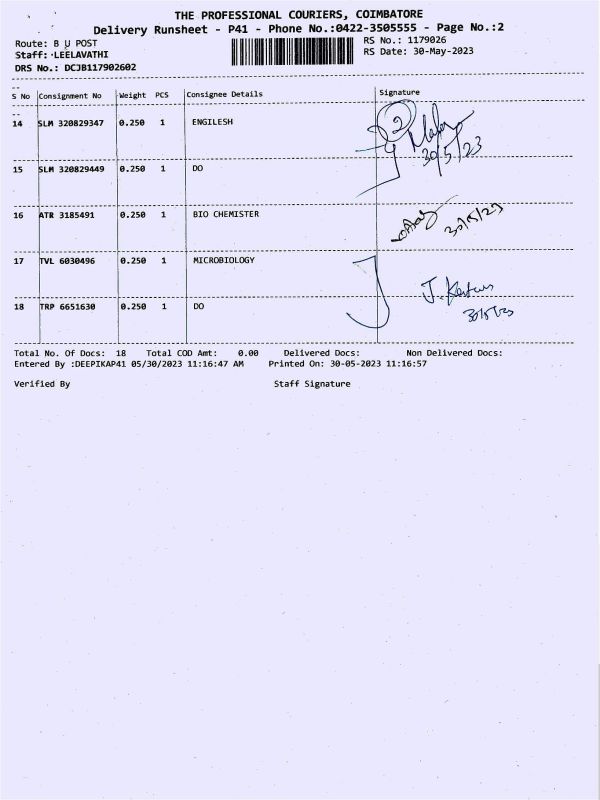 THE PROFESSIONAL COURIERS, COIMBATORE
Delivery Runsheet - P41 - Phone No.:0422-3505555 - Page No.:2
Route: B U POST RS No.: 1179026
Staff: LEELAVATHI RS Date: 30-May-2023
DRS No.: DCJB117902602
S No Consignment No Weight PCS Consignee Details Signature
14 SLM 320829347 0.250 1 ENGILESH
30/5/23
15 SLM 320829449 0.250 1 DO
16 ATR 3185491 0.250 1 BIO CHEMISTER
30/5/23
17 TVL 6030496 0.250 1 MICROBIOLOGY
18 TRP 6651630 0.250 1 DO
30/5/23
Total No. Of Docs: 18 Total COD Amt: 0.00 Delivered Docs: Non Delivered Docs:
Entered By :DEEPIKAP41 05/30/2023 11:16:47 AM Printed On: 30-05-2023 11:16:57
Verified By Staff Signature